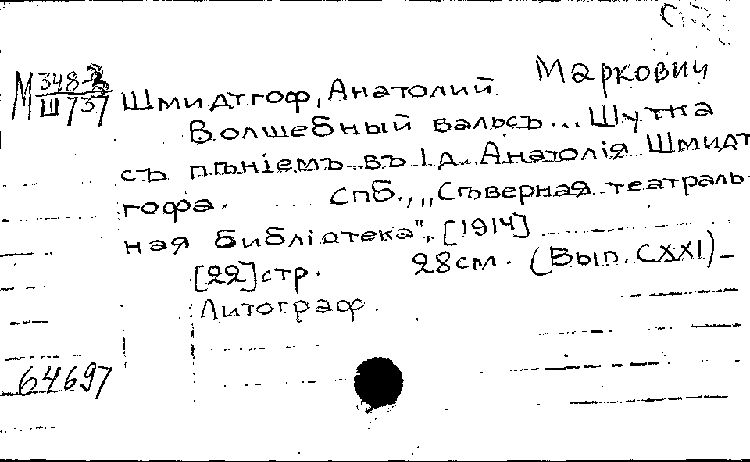 М 348-2 Ш/737
Шмидтгоф, Анатолий Маркович
Волшебный вальсъ... Шутка
съ пѣніемъ въ 1 д. Анатолія Шмидт-
гофа. СПб., „Сѣверная театраль-
ная библіотека", [1914]
[22] стр. 28 см. (Вып. CXXI) –
Литограф.
64697